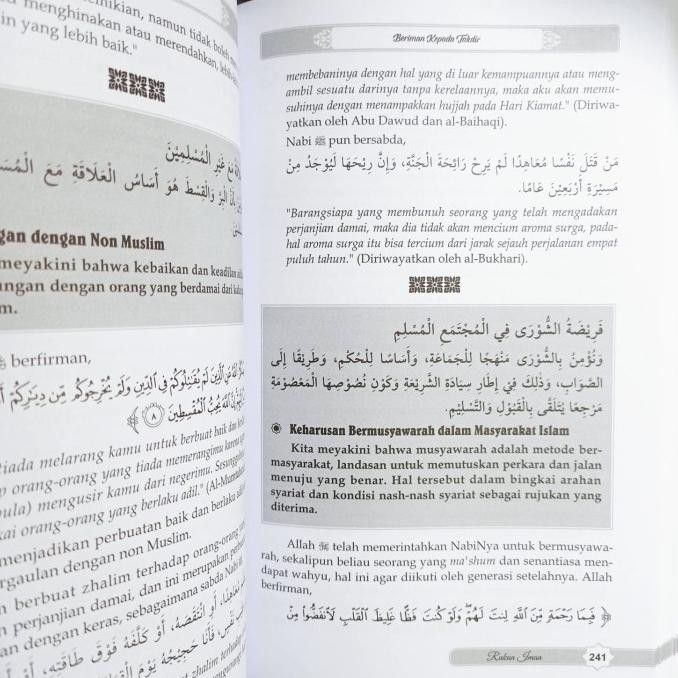 menghinakan atau merendahkan,
in yang lebih baik."
مَعَ غَيْرِ الْمُسْلِمِيْنَ
أَنَّ الْبِرَّ وَالْقِسْطَ هُوَ أَسَاسُ الْعَلَاقَةِ مَعَ
gan dengan Non Muslim
meyakini bahwa kebaikan dan keadilan
ungan dengan orang yang berdamai dari
m.
berfirman,
عَنِ الَّذِينَ لَمْ يُقَاتِلُوكُمْ فِي الدِّينِ وَلَمْ يُخْرِجُوكُم مِّن دِيَارِكُمْ
إِنَّ اللَّهَ يُحِبُّ الْمُقْسِطِينَ ﴿٨﴾
tiada melarang kamu untuk berbuat baik dan
orang-orang yang tiada memerangimu karena
pula) mengusir kamu dari negerimu. Sesungguhnya
kai orang-orang yang berlaku adil."
menjadikan perbuatan baik dan berlaku adil
rgaulan dengan non Muslim.
n berbuat zhalim terhadap orang-orang
n perjanjian damai, dan ini merupakan
an dengan keras, sebagaimana sabda Nabi
أَوِ انْتَقَصَهُ، أَوْ كَلَّفَهُ فَوْقَ طَاقَتِهِ، أَوْ
فَأَنَا حَجِيْجُهُ يَوْمَ
zhalim terhadap
Beriman Kepada Takdir
membebaninya dengan hal yang di luar kemampuannya atau meng-
ambil sesuatu darinya tanpa kerelaannya, maka aku akan memu-
suhinya dengan menampakkan hujjah pada Hari Kiamat." (Diriwa-
yatkan oleh Abu Dawud dan al-Baihaqi).
Nabi ﷺ pun bersabda,
مَنْ قَتَلَ نَفْسًا مُعَاهِدًا لَمْ يَرِحْ رَائِحَةَ الْجَنَّةِ، وَإِنَّ رِيْحَهَا لَيُوْجَدُ مِنْ
مَسِيْرَةِ أَرْبَعِيْنَ عَامًا.
"Barangsiapa yang membunuh seorang yang telah mengadakan
perjanjian damai, maka dia tidak akan mencium aroma surga, pada-
hal aroma surga itu bisa tercium dari jarak sejauh perjalanan empat
puluh tahun." (Diriwayatkan oleh al-Bukhari).
فَرِيْضَةُ الشُّوْرَى فِي الْمُجْتَمَعِ الْمُسْلِمِ
وَنُؤْمِنُ بِالشُّوْرَى مَنْهَجًا لِلْجَمَاعَةِ، وَأَسَاسًا لِلْحُكْمِ، وَطَرِيْقًا إِلَى
الصَّوَابِ، وَذٰلِكَ فِي إِطَارِ سِيَادَةِ الشَّرِيْعَةِ وَكَوْنِ نُصُوْصِهَا الْمَعْصُوْمَةِ
مَرْجِعًا يُتَلَقَّى بِالْقَبُوْلِ وَالتَّسْلِيْمِ.
Keharusan Bermusyawarah dalam Masyarakat Islam
Kita meyakini bahwa musyawarah adalah metode ber-
masyarakat, landasan untuk memutuskan perkara dan jalan
menuju yang benar. Hal tersebut dalam bingkai arahan
syariat dan kondisi nash-nash syariat sebagai rujukan yang
diterima.
Allah ﷻ telah memerintahkan NabiNya untuk bermusyawa-
rah, sekalipun beliau seorang yang ma'shum dan senantiasa men-
dapat wahyu, hal ini agar diikuti oleh generasi setelahnya. Allah
berfirman,
﴿ فَبِمَا رَحْمَةٍ مِّنَ اللَّهِ لِنتَ لَهُمْ ۖ وَلَوْ كُنتَ فَظًّا غَلِيظَ الْقَلْبِ لَانفَضُّوا مِنْ
Rukun Iman
241